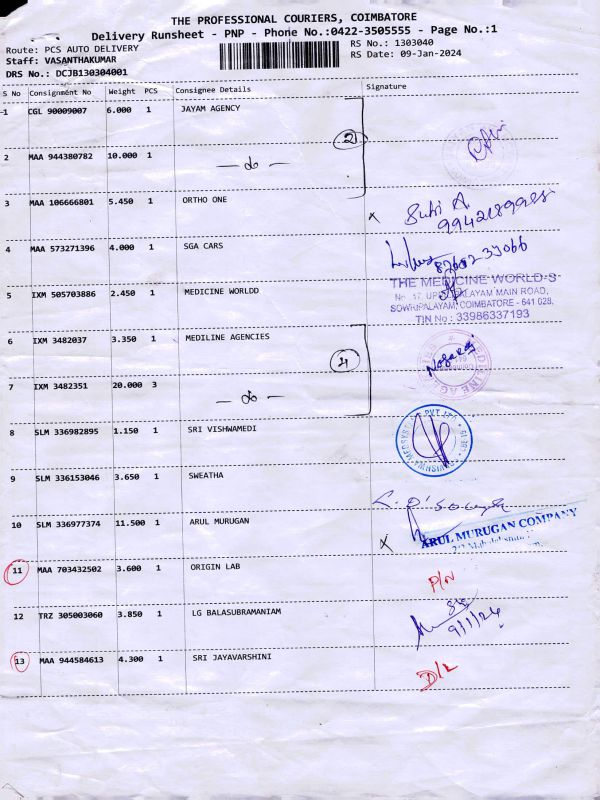 THE PROFESSIONAL COURIERS, COIMBATORE
Delivery Runsheet - PNP - Phone No.:0422-3505555 - Page No.:1
Route: PCS AUTO DELIVERY
RS No.: 1303040
Staff: VASANTHAKUMAR
RS Date: 09-Jan-2024
DRS No.: DCJB130304001
S No Consignment No Weight PCS Consignee Details Signature
1 CGL 90009007 6.000 1 JAYAM AGENCY
2
2 MAA 944380782 10.000 1 — do —
3 MAA 106666801 5.450 1 ORTHO ONE
x
4 MAA 573271396 4.000 1 SGA CARS
5 IXM 505703886 2.450 1 MEDICINE WORLDD
THE MEDICINE WORLD-S
MAIN ROAD,
SOWRIPALAYAM, COIMBATORE - 641 028.
TIN No : 33986337193
6 IXM 3482037 3.350 1 MEDILINE AGENCIES
4
Nagaraj
7 IXM 3482351 20.000 3 — do —
8 SLM 336982895 1.150 1 SRI VISHWAMEDI
9 SLM 336153046 3.650 1 SWEATHA
10 SLM 336977374 11.500 1 ARUL MURUGAN
x
ARUL MURUGAN COMPANY
11 MAA 703432502 3.600 1 ORIGIN LAB
P/N
12 TRZ 305003060 3.850 1 LG BALASUBRAMANIAM
9/1/24
13 MAA 944584613 4.300 1 SRI JAYAVARSHINI
D/L